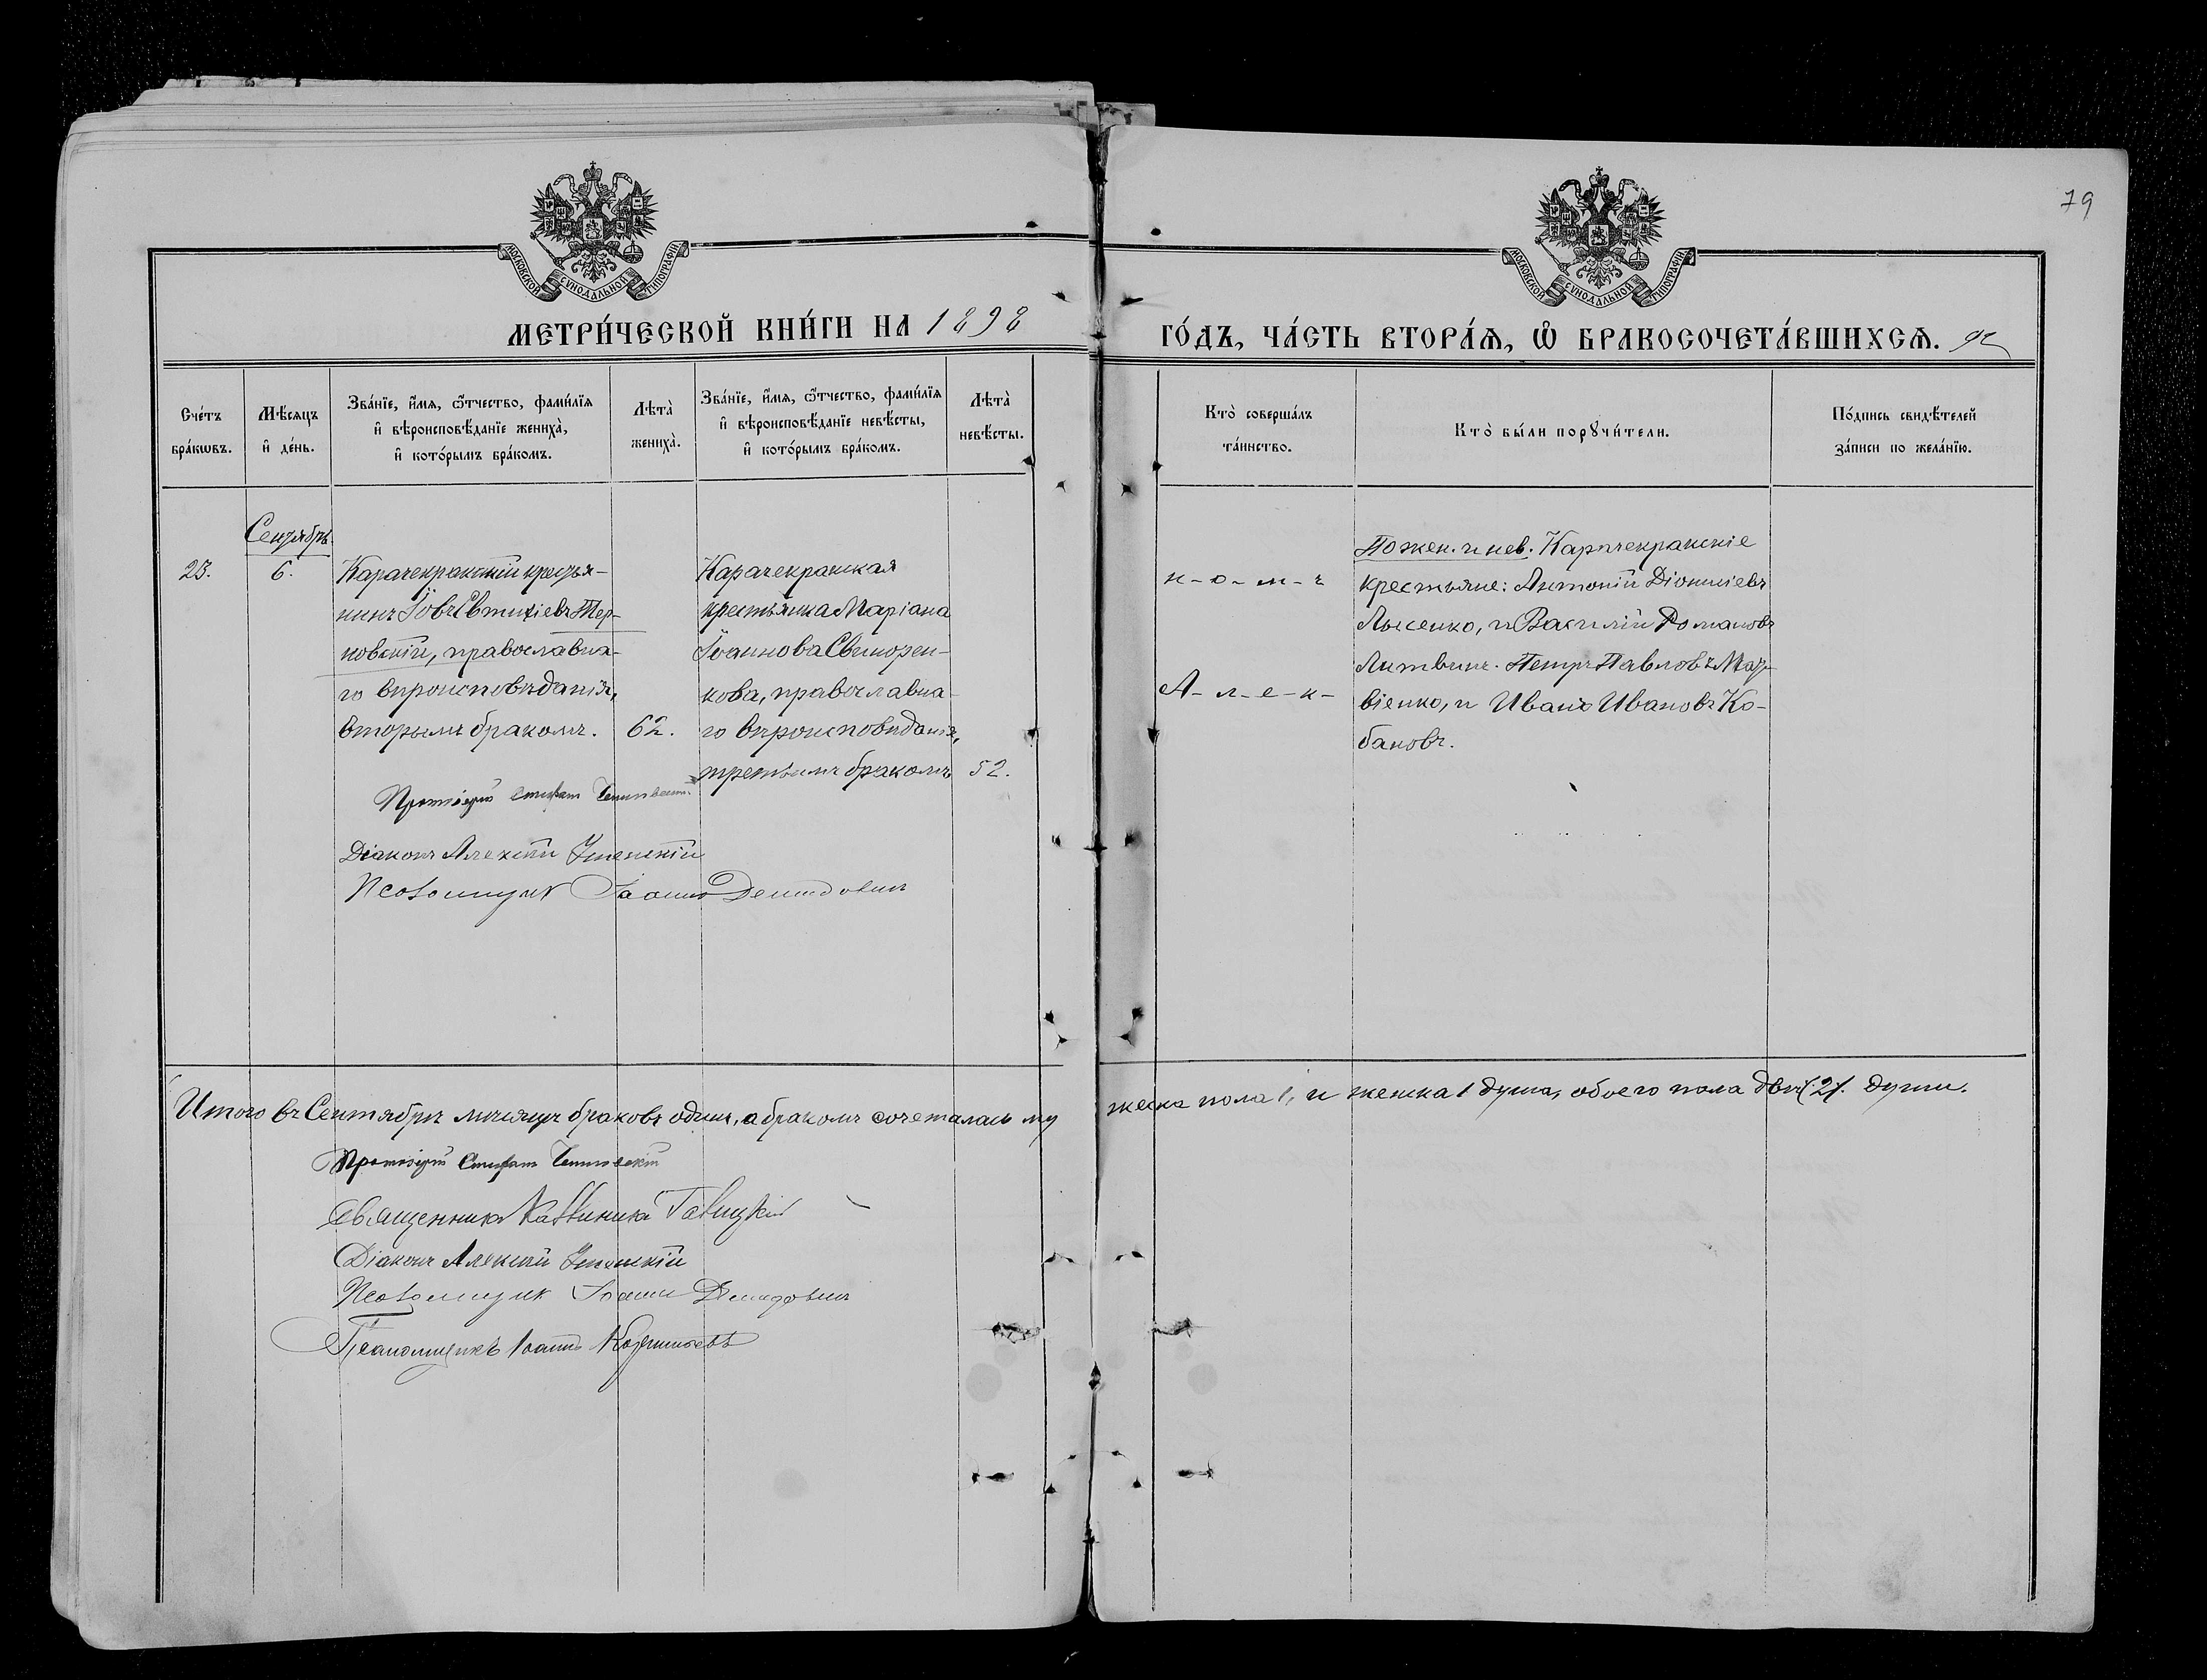 79
МОСКОВСКОЙ СУНОДАЛЬНОЙ ТИПОГРАФІИ
МОСКОВСКОЙ СУНОДАЛЬНОЙ ТИПОГРАФІИ
МЕТРИ́ЧЕСКОЙ КНИ́ГИ НА 1898
ГО́ДЪ, ЧА́СТЬ ВТОРА́Ѧ, Ѡ҆ БРАКОСОЧЕТА́ВШИХСѦ. 92
Сче́тъ бра́кѡвъ.
Мѣ́сяцъ и҆ де́нь.
Зва́нїе, и҆́мѧ, ѻ҆́тчество, фами́лїѧ
и҆ вѣроисповѣ́данїе жениха̀,
и҆ кото́рымъ бра́комъ.
Лѣта̀ жениха̀.
Зва́нїе, и҆́мѧ, ѻ҆́тчество, фами́лїѧ
и҆ вѣроисповѣ́данїе невѣ́сты,
и҆ кото́рымъ бра́комъ.
Лѣта̀ невѣ́сты.
Кто̀ соверша́лъ та́инство.
Кто̀ бы́ли порꙋчи́тели.
По́дпись свидѣ́телей за́писи по жела́нїю.
Сентябрь.
23.
6.
Карачекракскій крестья-
нинъ Іовъ Евтихіевъ Тер-
новскій, православна-
го вѣроисповѣданія,
вторымъ бракомъ.
62.
Карачекракская
крестьянка Маріана
Іоаннова Свинорен-
кова, православна-
го вѣроисповѣданія,
третьимъ бракомъ
52.
н-о-м-ъ
А-л-е-к-
По жен. и нев. Карачекракскіе
крестьяне: Антоній Діонисіевъ
Лысенко, и Василій Романовъ
Литвинъ. Петръ Павловъ Мат-
віенко, и Иванъ Ивановъ Ко-
бановъ.
Протоіерей Стефанъ
Діаконъ Алексій
Псаломщикъ Іоаннъ Демидовичъ
Итого въ Сентябрѣ мѣсяцѣ браковъ одинъ, а бракомъ сочеталась му
жеска пола 1, и женска 1 душа, обоего пола двѣ /:2:/. души.
Протоіерей Стефанъ
Священникъ Каллиникъ
Діаконъ Алексій
Псаломщикъ Іоаннъ Демидовичъ
Псаломщикъ Іоаннъ